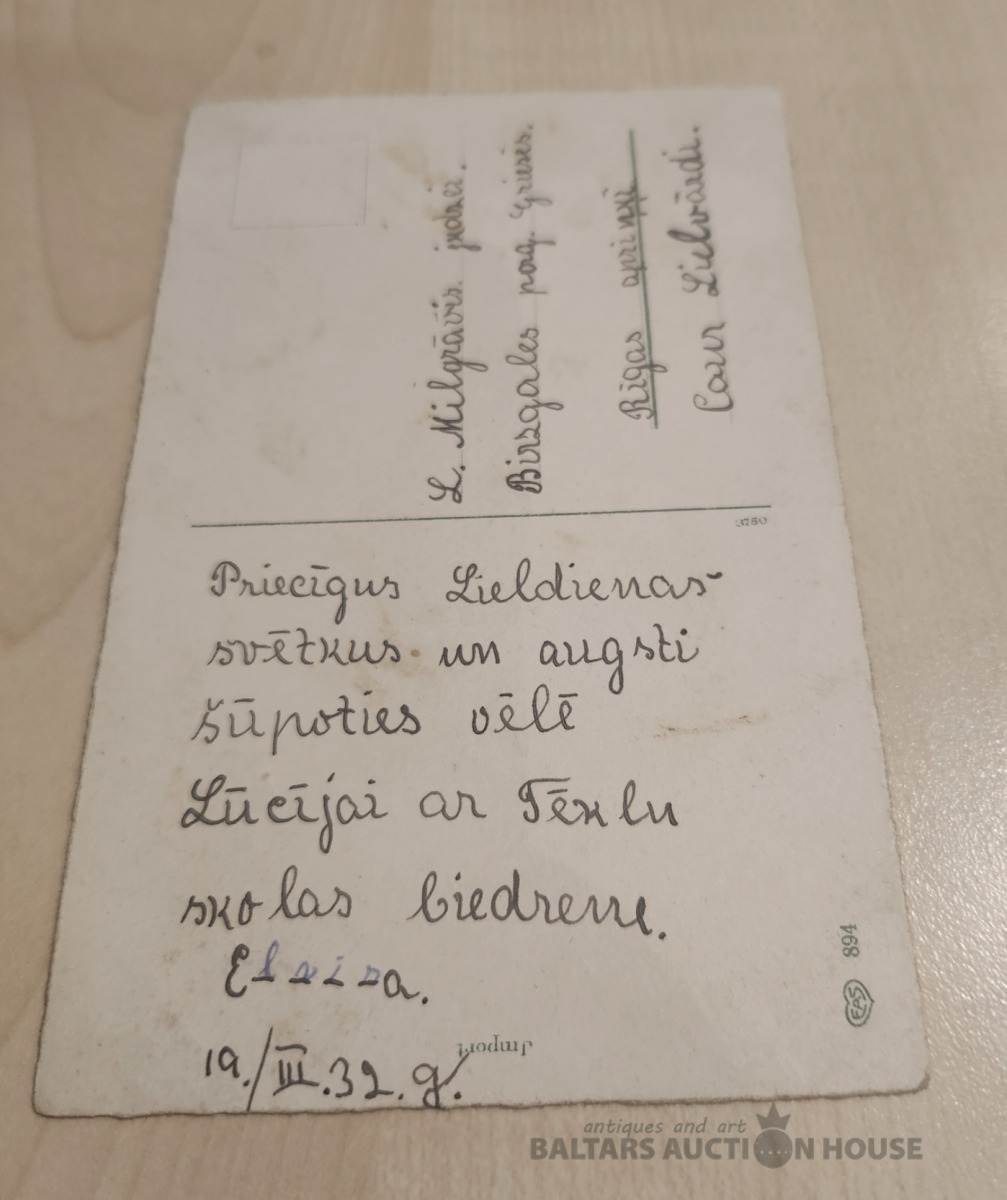 Priecīgus Lieldienas
svētkus un augsti
šūpoties vēlē
Lūcījai ar Tēklu
skolas biedrene.
19./III.32.g.
L. Milgrāvis jkdzei.
Birzgales pag. Griezis.
Rīgas apriņķī
Caur Lielvārdi.
3750
Import
EAS 894
antiques and art
BALTARS AUCTION HOUSE